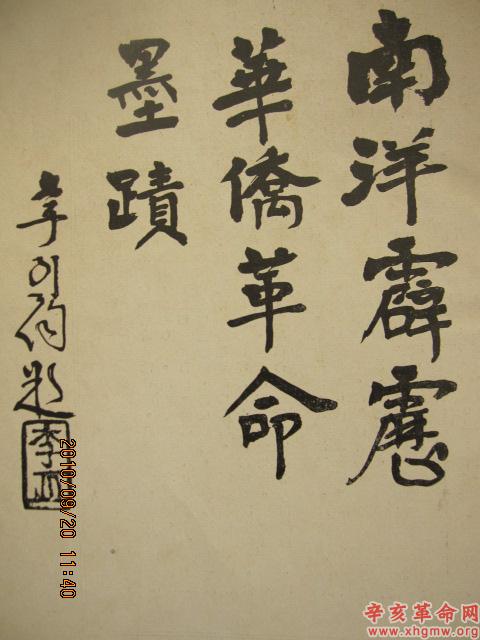 南洋霹靂
華僑革命
墨蹟
題
2010/09/20 11:40
辛亥革命网
www.xhgmw.org